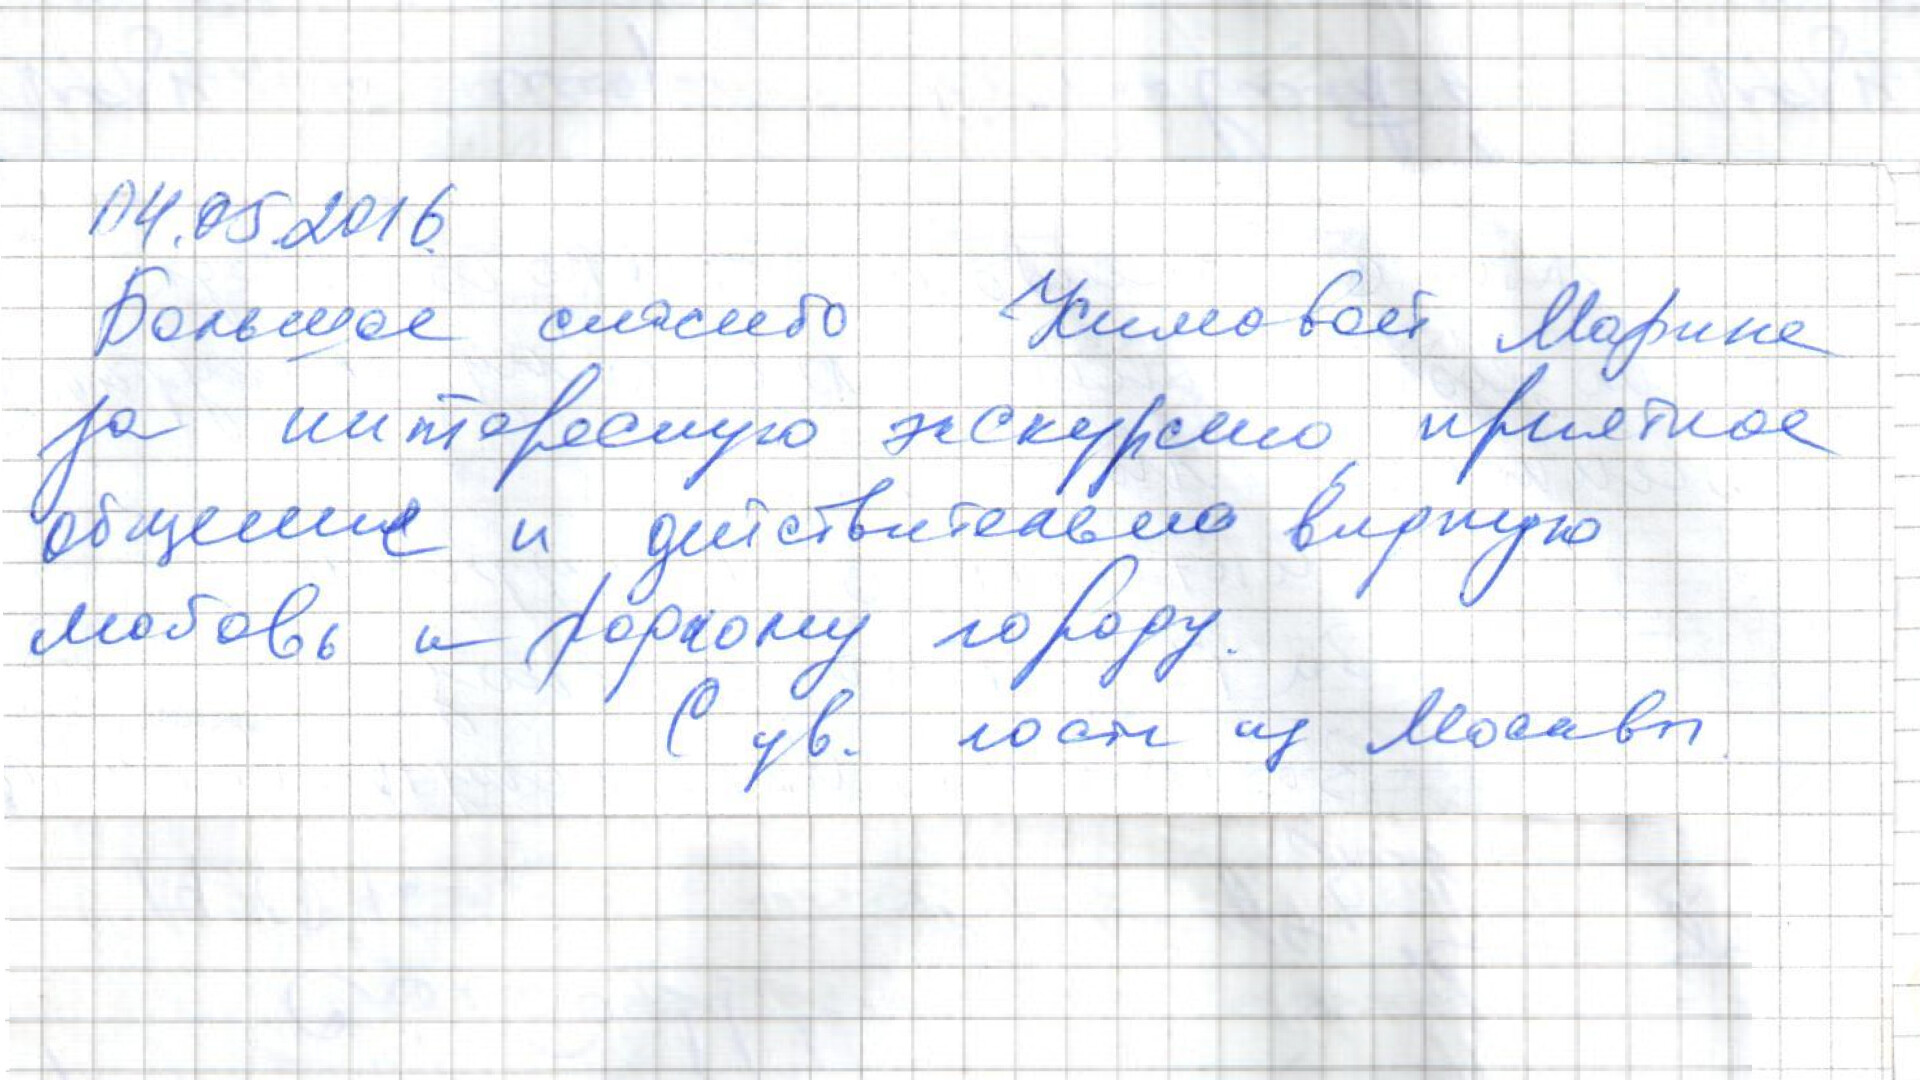 04.05.2016
Большое спасибо Химовой Марине
за интересную экскурсию, приятное
общение и действительно видную
любовь к родному городу.
С ув. гости из Москвы.